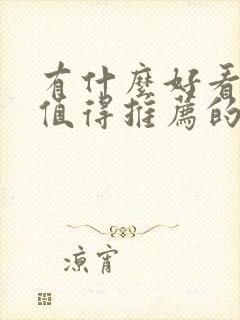 有什麼好看
值得推薦的
凉宵